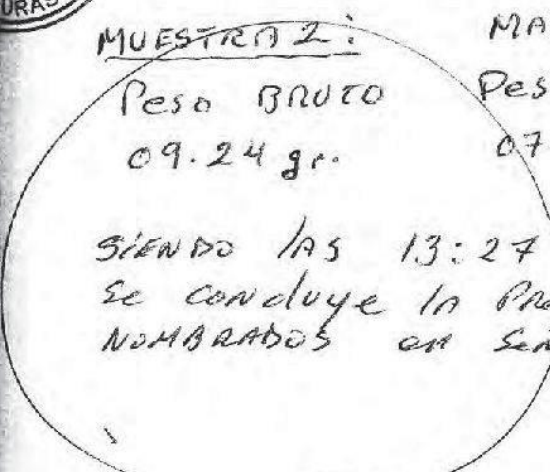 URAS
MUESTRA 2: MA
Peso BRUTO Pes
09.24 gr. 07
SIENDO lAS 13:27
Se concluye la PRO
NOMBRADOS en Señ